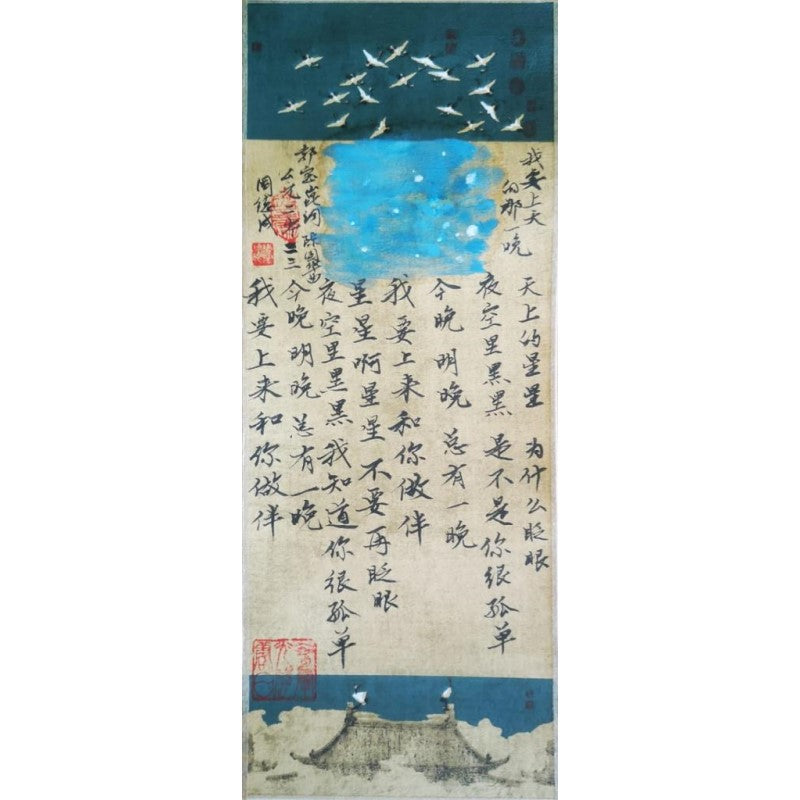 我要上天
的那一晚
天上的星星 为什么眨眼
夜空里黑黑 是不是你很孤单
今晚 明晚 总有一晚
我要上来和你做伴
星星啊星星 不要再眨眼
夜空里黑黑 我知道你很孤单
今晚 明晚 总有一晚
我要上来和你做伴
郭宝崑词
公元二零二三
周德成